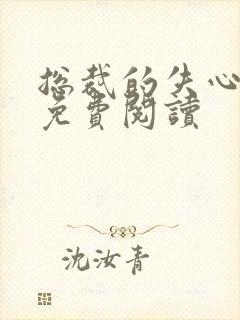 总裁的失心
免費閱讀
沈汝青